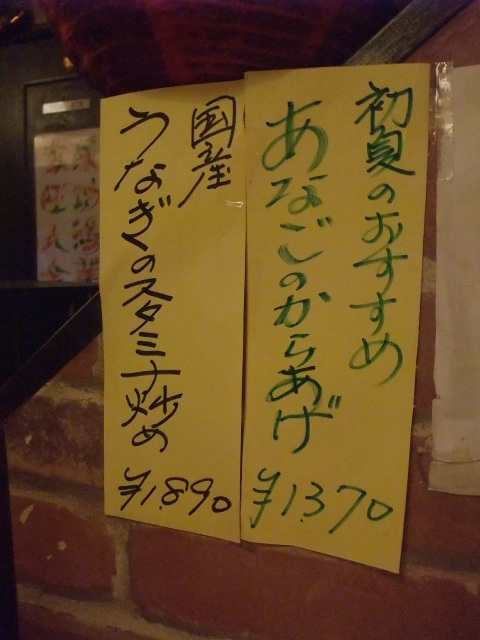 初夏のおすすめ
あなごのからあげ
¥1370
国産
うなぎのスタミナ炒め
¥1890